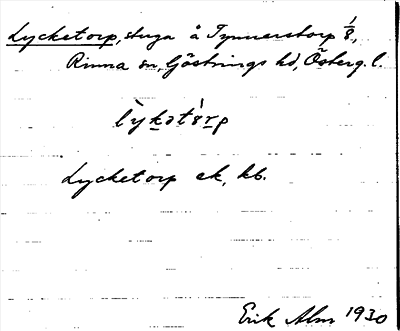 Lycketorp, stuga å Tynnerstorp 1/8,
Rinna sn, Göstrings hd, Österg. l.
lỳkətórp
Lycketorp ek, kb.
Erik Alm 1930